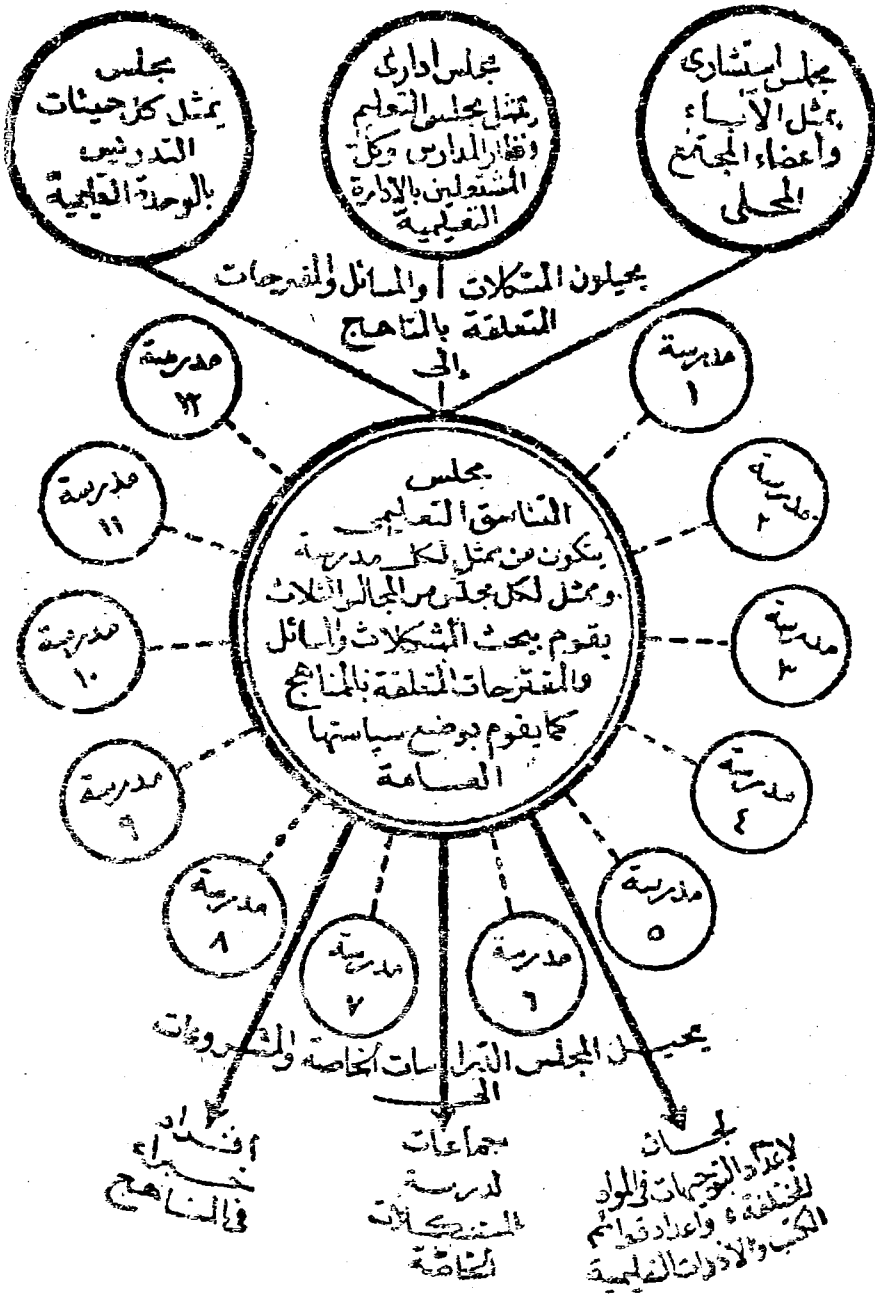 مجلس استشارى
يمثل الآباء
وأعضاء المجتمع
المحلى
مجلس ادارى
يمثل مجلس التعليم
ونظار المدارس وكل
المشتغلين بالإدارة
التعليمية
مجلس
يمثل كل هيئات
التدريس
بالوحدة التعليمية
يحيلون المشكلات والمسائل والمقترحات
المتعلقة بالمناهج
إلى
مدرسة
١
مدرسة
٢
مدرسة
٣
مدرسة
٤
مدرسة
٥
مدرسة
٦
مدرسة
٧
مدرسة
٨
مدرسة
٩
مدرسة
١٠
مدرسة
١١
مدرسة
١٢
مجلس
التناسق التعليمى
يتكون من ممثل لكل مدرسة
وممثل لكل مجلس من المجالس الثلاث
يقوم ببحث المشكلات والمسائل
والمقترحات المتعلقة بالمناهج
كما يقوم بوضع سياستها
العامة
يحيل المجلس الدراسات الخاصة والمشروعات
الى
لجان
لإعداد التوجيهات فى المواد
المختلفة، وإعداد قوائم
الكتب والأدوات التعليمية
جماعات
لدراسة
المشكلات
الخاصة
أفراد
خبراء
فى المناهج